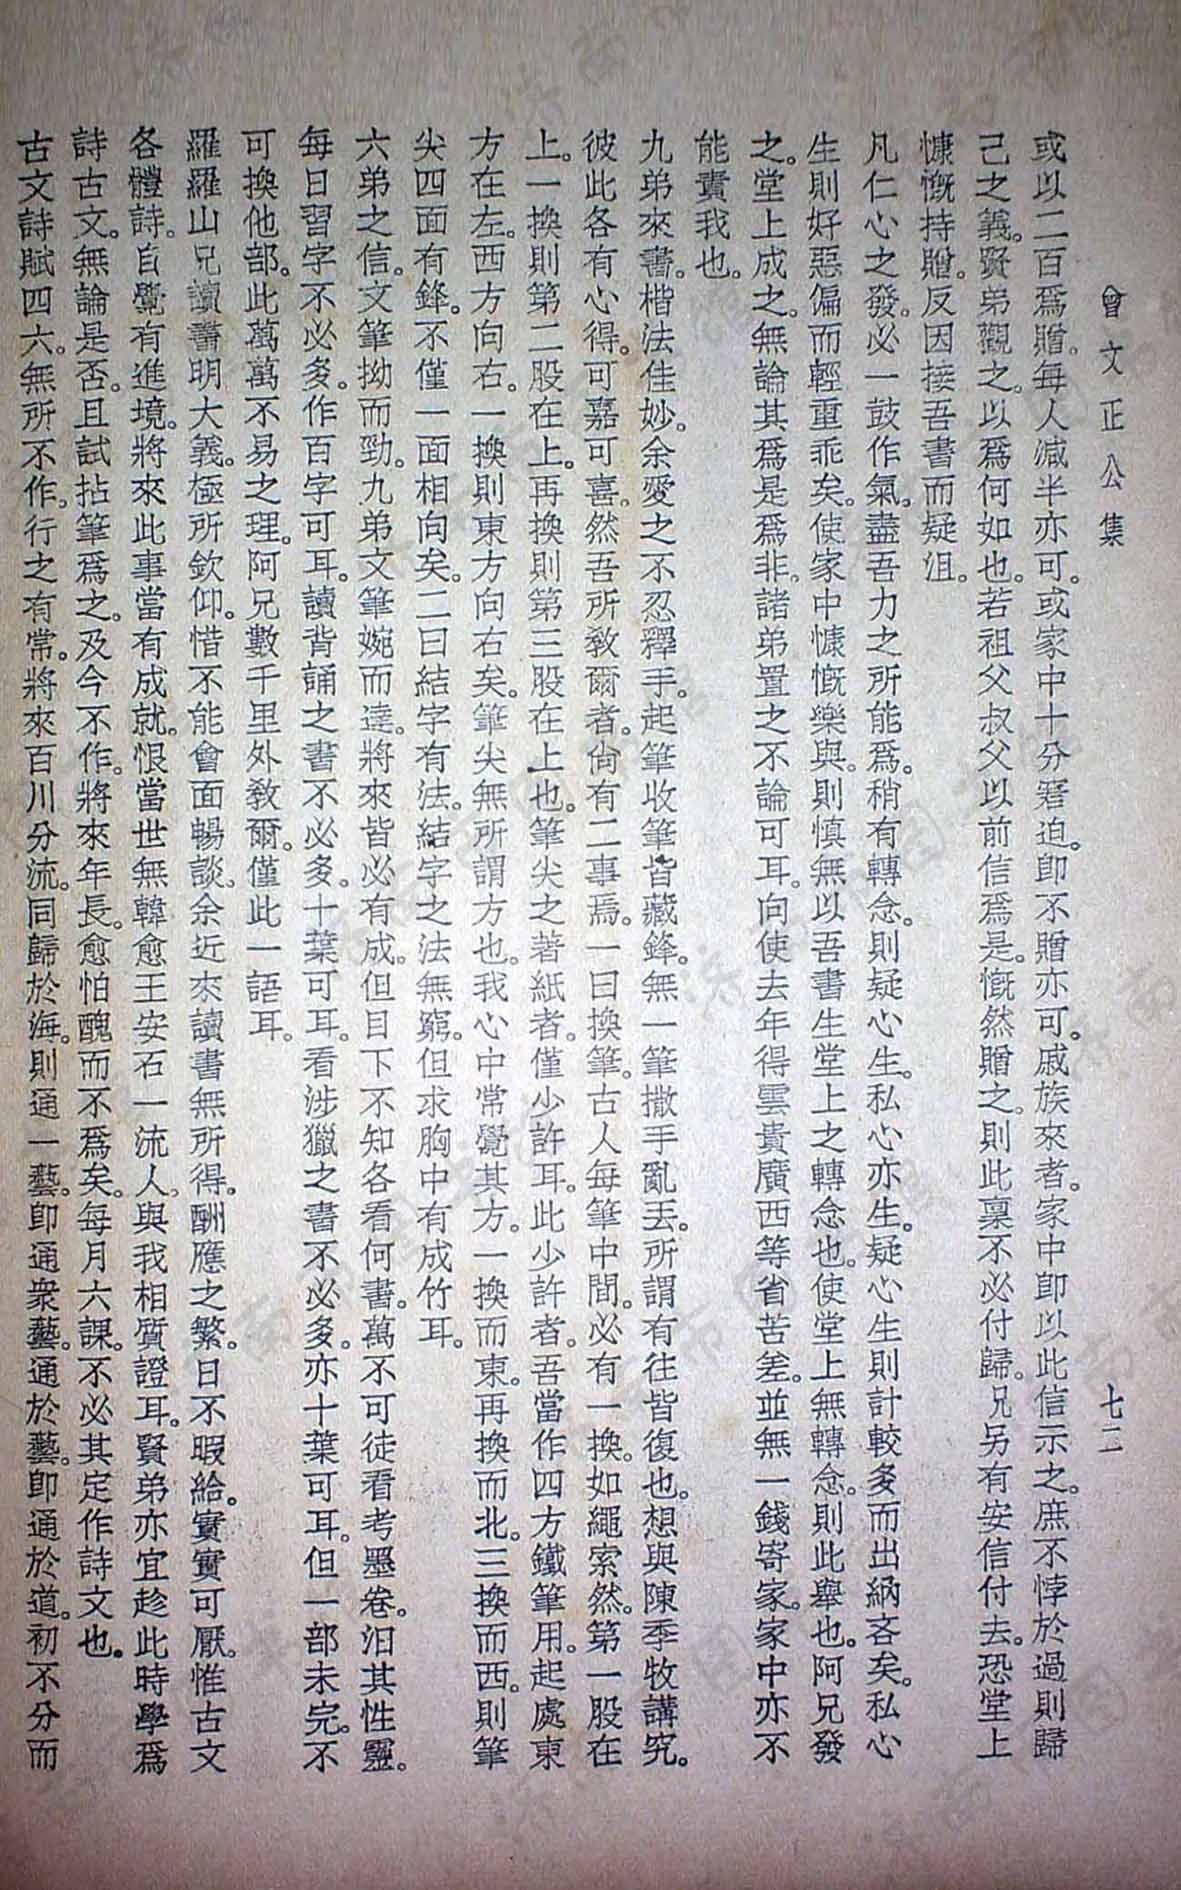 曾文正公集
七二
或以二百爲贈。每人減半亦可。或家中十分窘迫。卽不贈亦可。戚族來者。家中卽以此信示之。庶不悖於過則歸
己之義。賢弟觀之。以爲何如也。若祖父叔父以前信爲是。慨然贈之。則此稟不必付歸。兄另有安信付去。恐堂上
慷慨持贈。反因接吾書而疑沮。
凡仁心之發。必一鼓作氣。盡吾力之所能爲。稍有轉念。則疑心生。私心亦生。疑心生則計較多而出納吝矣。私心
生則好惡偏而輕重乖矣。使家中慷慨樂與。則愼無以吾書生堂上之轉念也。使堂上無轉念。則此舉也。阿兄發
之。堂上成之。無論其爲是爲非。諸弟置之不論可耳。向使去年得雲貴廣西等省苦差。並無一錢寄家。家中亦不
能責我也。
九弟來書。楷法佳妙。余愛之不忍釋手。起筆收筆皆藏鋒。無一筆撒手亂丟。所謂有往皆復也。想與陳季牧講究。
彼此各有心得。可嘉可喜。然吾所敎爾者。尙有二事焉。一曰換筆。古人每筆中間。必有一換。如繩索然。第一股在
上。一換則第二股在上。再換則第三股在上也。筆尖之著紙者。僅少許耳。此少許者。吾當作四方鐵筆用。起處東
方在左。西方向右。一換則東方向右矣。筆尖無所謂方也。我心中常覺其方。一換而東。再換而北。三換而西。則筆
尖四面有鋒。不僅一面相向矣。二曰結字有法。結字之法無窮。但求胸中有成竹耳。
六弟之信。文筆拗而勁。九弟文筆婉而達。將來皆必有成。但目下不知各看何書。萬不可徒看考墨卷。汨其性靈。
每日習字不必多。作百字可耳。讀背誦之書不必多。十葉可耳。看涉獵之書不必多。亦十葉可耳。但一部未完。不
可換他部。此萬萬不易之理。阿兄數千里外敎爾。僅此一語耳。
羅羅山兄讀書明大義。極所欽仰。惜不能會面暢談。余近來讀書無所得。酬應之繁。日不暇給。實實可厭。惟古文
各體詩。自覺有進境。將來此事當有成就。恨當世無韓愈王安石一流人。與我相質證耳。賢弟亦宜趁此時學爲
詩古文。無論是否。且試拈筆爲之。及今不作。將來年長。愈怕醜而不爲矣。每月六課。不必其定作詩文也。
古文詩賦四六。無所不作。行之有常。將來百川分流。同歸於海。則通一藝。卽通衆藝。通於藝。卽通於道。初不分而